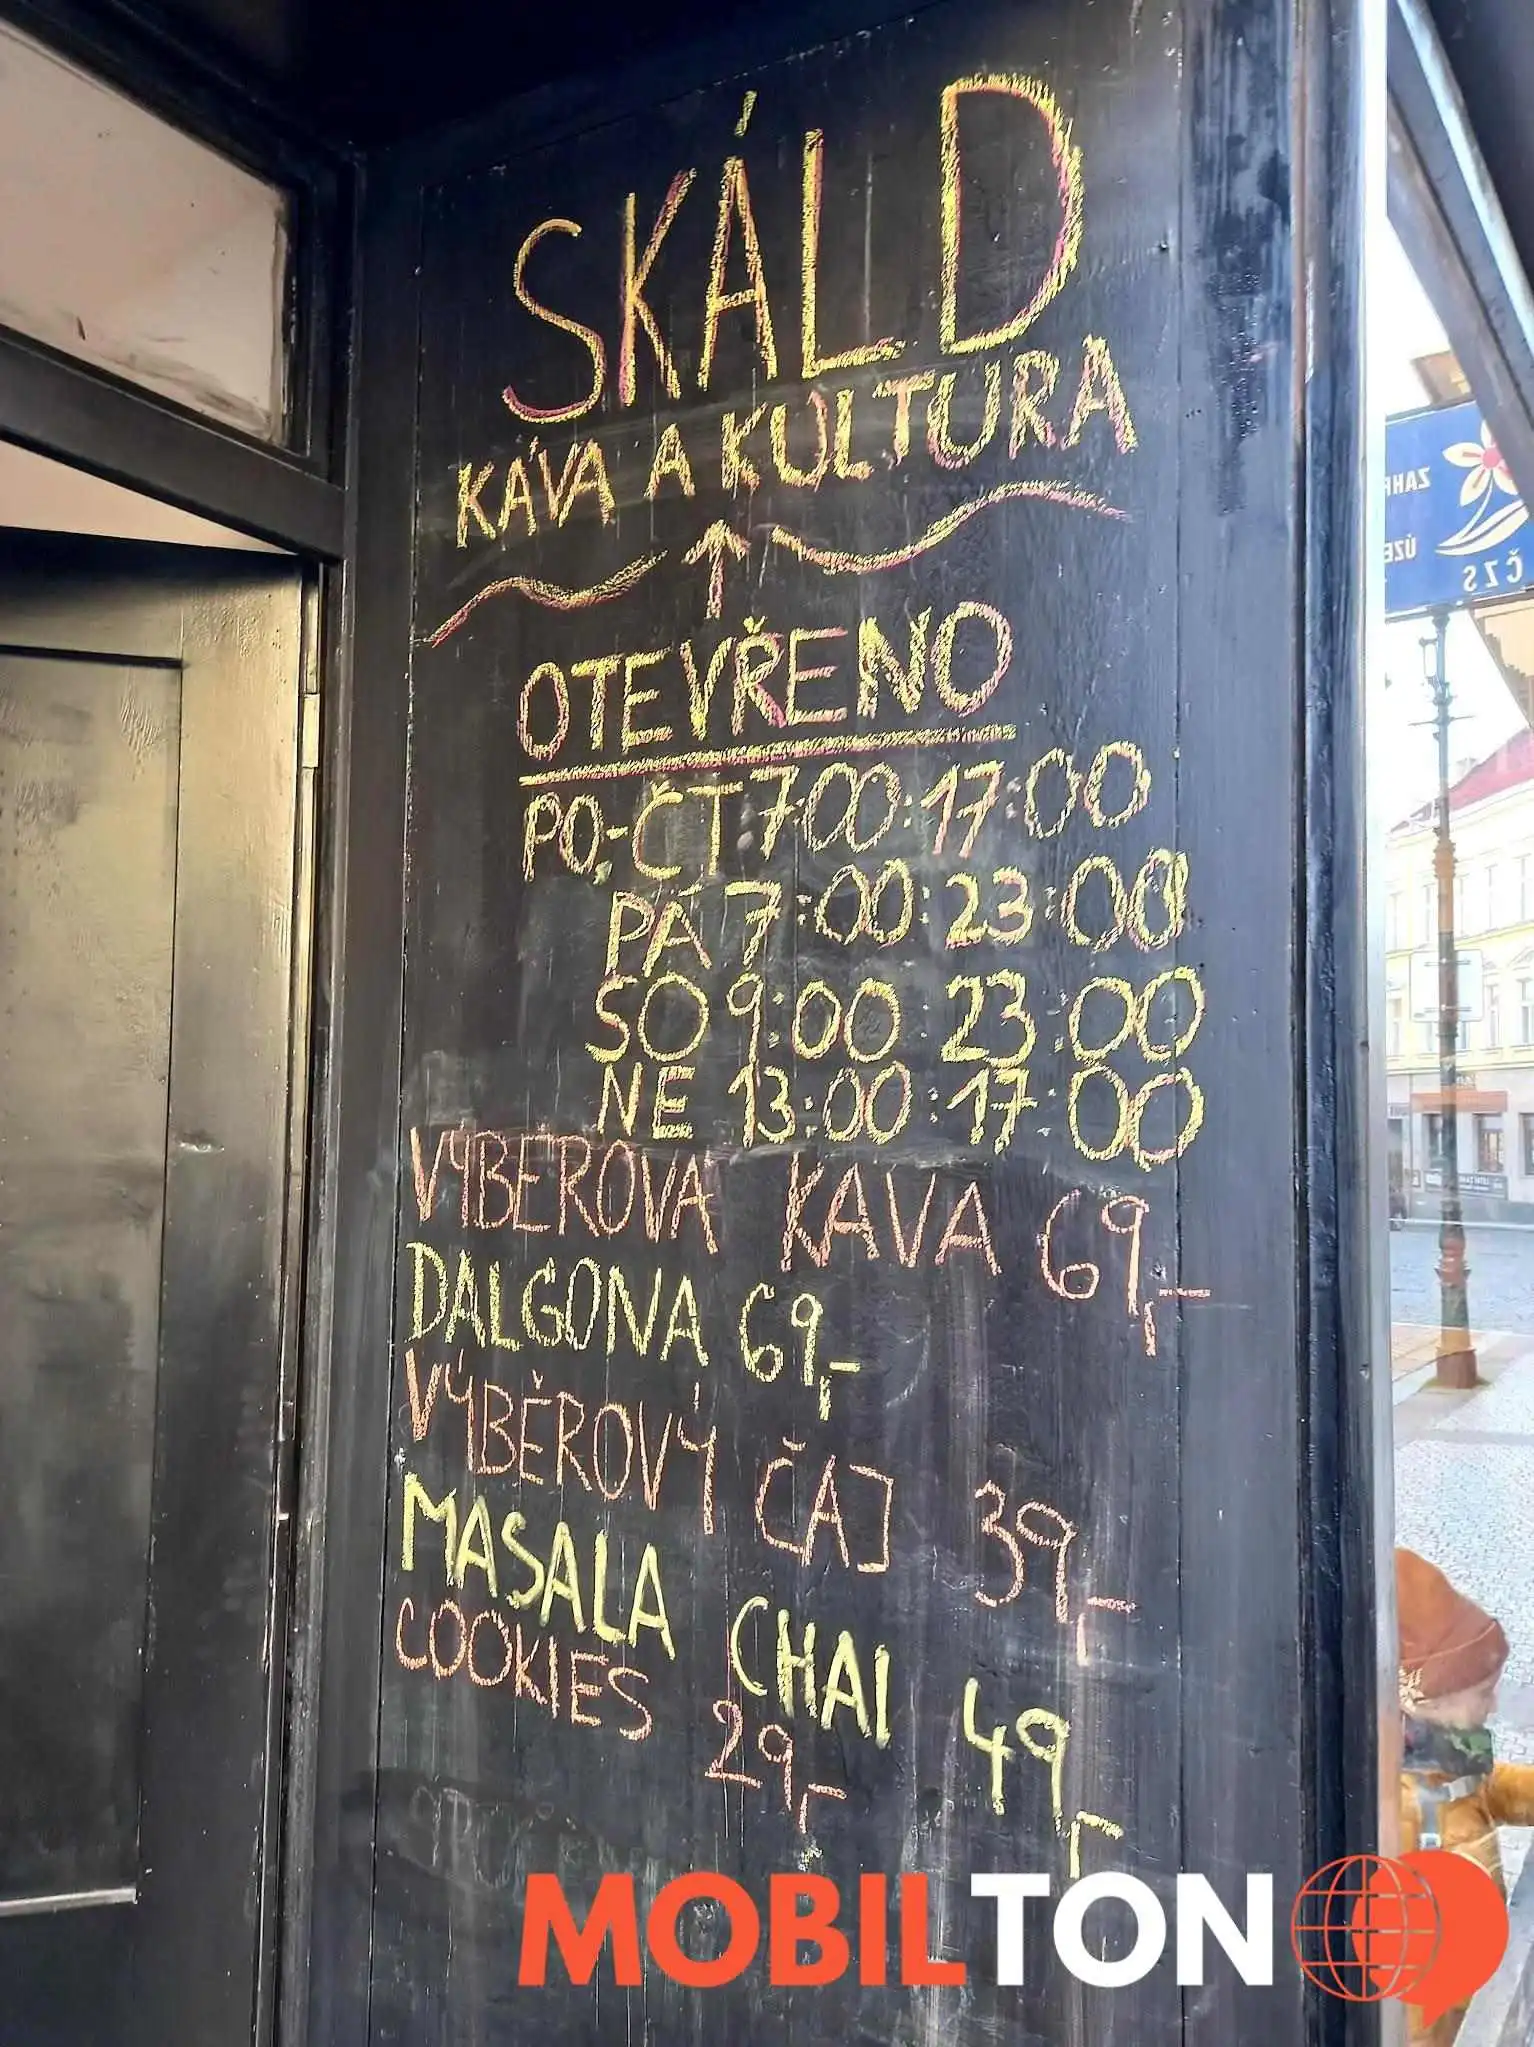 SKÁLD
KÁVA A KULTURA
OTEVŘENO
PO,-ČT 7:00:17:00
PÁ 7:00:23:00
SO 9:00:23:00
NE 13:00:17:00
VÝBEROVA KAVA 69,-
DALGONA 69,-
VÝBĚROVÝ ČAJ 39,-
MASALA CHAI 49,-
COOKIES 29,-
MOBILTON
ČZS